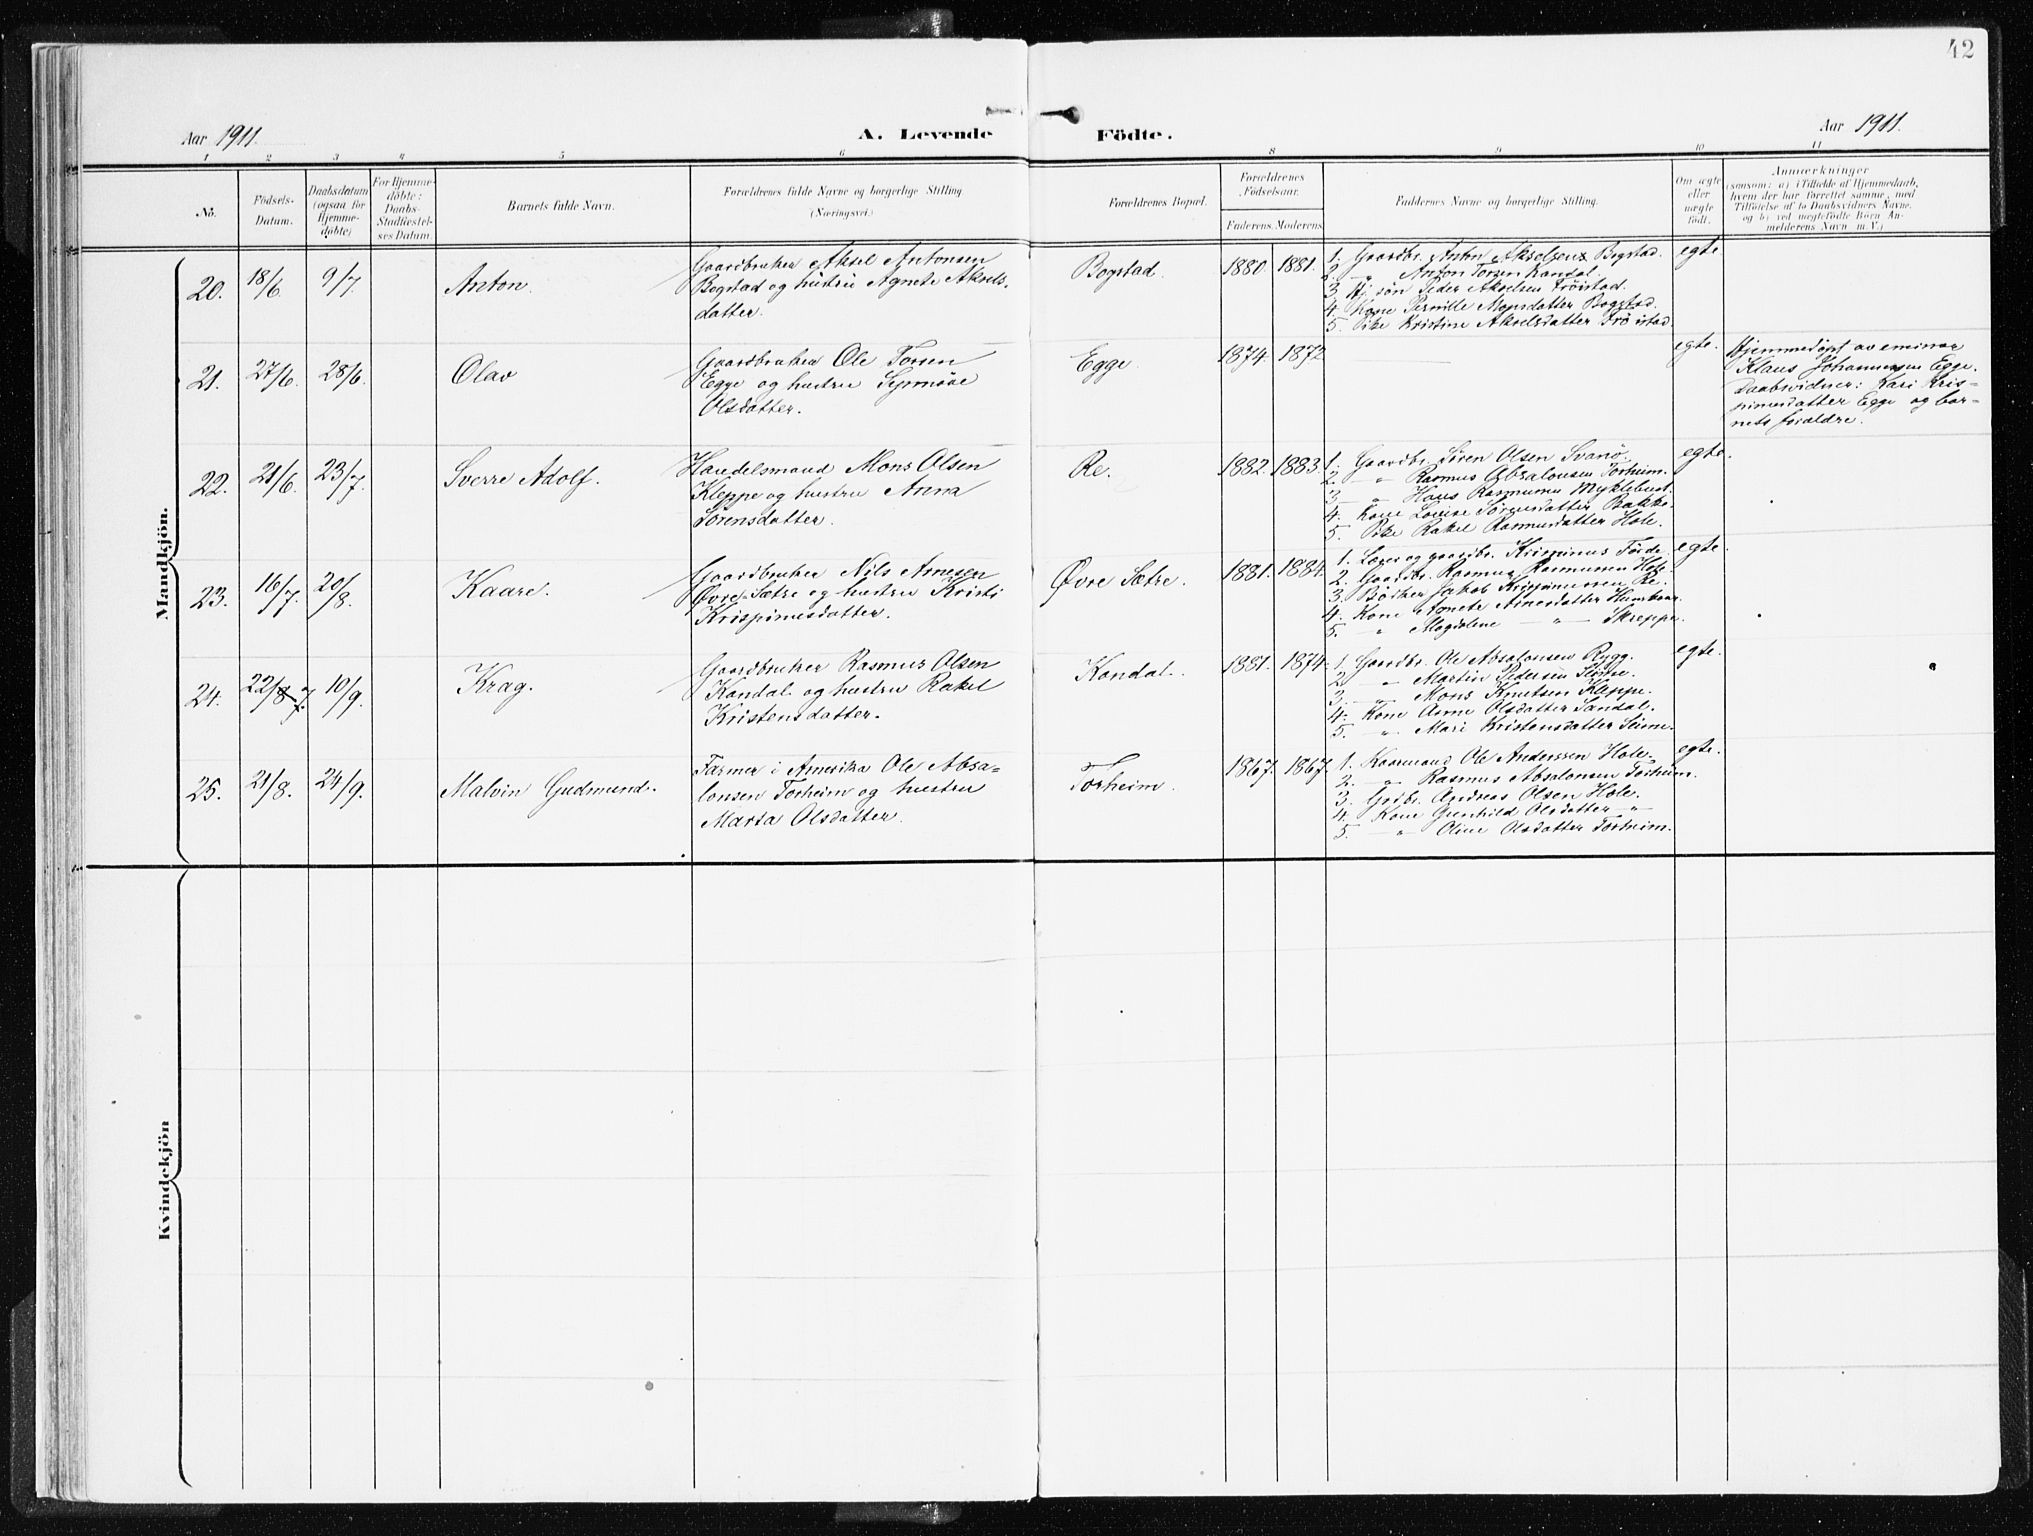 42
Aar 1911.
A. Levende Födte.
Aar 1911.
1 2 3 4 5 6 8 9 10 11
No.
Födsels-
Datum.
Daabsdatum
(ogsaa for
Hjemme-
döbte)
For Hjemme-
döbte:
Daabs-
Stadfæstel-
ses Datum.
Barnets fulde Navn.
Forældrenes fulde Navne og borgerlige Stilling
(Næringsvei.)
Forældrenes Bopæl.
Forældrenes
Födselsaar.
Faderens. Moderens.
Faddernes Navne og borgerlige Stilling.
Om ægte
eller
uægte
födt.
Anmærkninger
(saasom: a) i Tilfælde af Hjemmedaab,
hvem der har forrettet samme, med
Tilföielse af to Daabsvidners Navne,
og b) ved uægtefödte Börn An-
melderens Navn m. V.)
Mandkjön.
20. 18/6. 9/7. Anton.
Gaardbruker Aksel Antonsen
Bogstad og hustru Agnete Aksels-
datter.
Bogstad. 1880. 1881.
1. Gaardbr. Anton Akselsen Bogstad.
2. " Anton Torsen Kandal.
3. Gj. søn Peder Akselsen Trøistad.
4. Kone Pernille Monsdatter Bogstad.
5. Pike Kristine Akselsdatter Trøistad.
egte.
21. 27/6. 28/6. Olav
Gaardbruker Ole Torsen
Egge og hustru Synnöve
Olsdatter.
Egge. 1874. 1872
—
egte.
Hjemmedøpt av eminar
Klaus Johannesen Egge.
Daabsvidner: Kari Kris-
pinusdatter Egge og bar-
nets foraldre.
22. 21/6. 23/7. Sverre Adolf.
Handelsmand Mons Olsen
Kleppe og hustru Anna
Sörensdatter.
Re. 1882. 1883.
1. Gaardbr. Søren Olsen Svanø.
2. — " Rasmus Absalonsen Torheim.
3. — " Hans Rasmusen Myklebust.
4. Kone Lovise Sörensdatter Bakke.
5. Pike Rakel Rasmusdatter Hole.
egte.
23. 16/7. 20/8. Kaare.
Gaardbruker Nils Arnesen
Øvre-Sætre og hustru Kristi
Krispinusdatter.
Øvre Sætre. 1881. 1884.
1. Lærer og gaardbr. Krispinus Förde.
2. Gaardbr. Rasmus Rasmusen Hole.
3. Bødker Jakob Krispinussen Re.
4. Kone Agnete Arnesdatter
5. — " Magdalene — " — Skreppe.
egte.
24. 22/8 7. 10/9. Krag.
Gaardbruker Rasmus Olsen
Kandal og hustru Rakel
Kristensdatter.
Kandal. 1881. 1874.
1. Gaardbr. Ole Absalonsen Rygg.
2. — " Martin Pedersen
3. — " Mons Knutsen Kleppe.
4. Kone Anne Olsdatter Sandal.
5. — " Mari Kristensdatter Seime.
egte.
25. 21/8. 24/9. Malvin Gudmund.
Farmer i Amerika Ole Absa-
lonsen Torheim og hustru
Marta Olsdatter.
Torheim. 1867. 1867.
1. Kaarmand Ole Anderssen Hole.
2. — " Rasmus Absalonsen Torheim.
3. Grdbr. Andreas Olsen Hole.
4. Kone Gunhild Olsdatter — "
5. — " Oline Olsdatter Torheim.
egte.
Kvindekjön